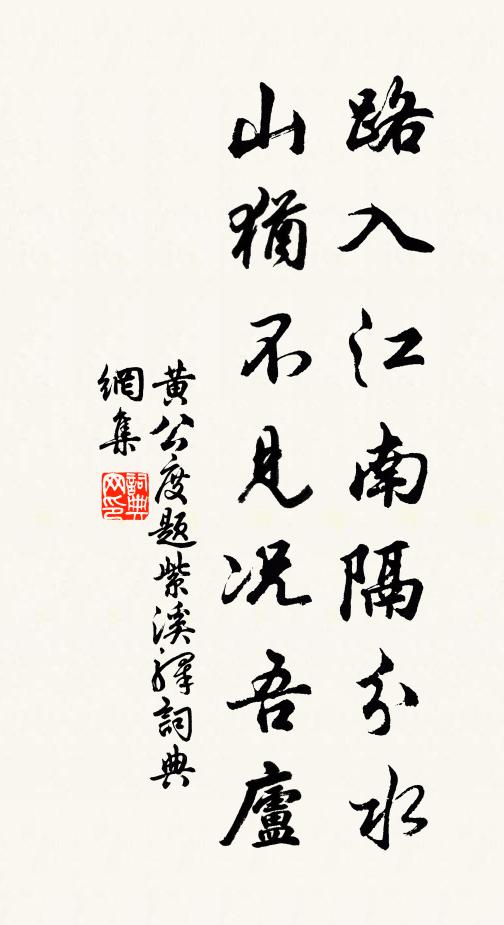 路入江南隔分水
山猶不見況吾廬
黃公度題紫溪驛詞典
網集
詞典網印